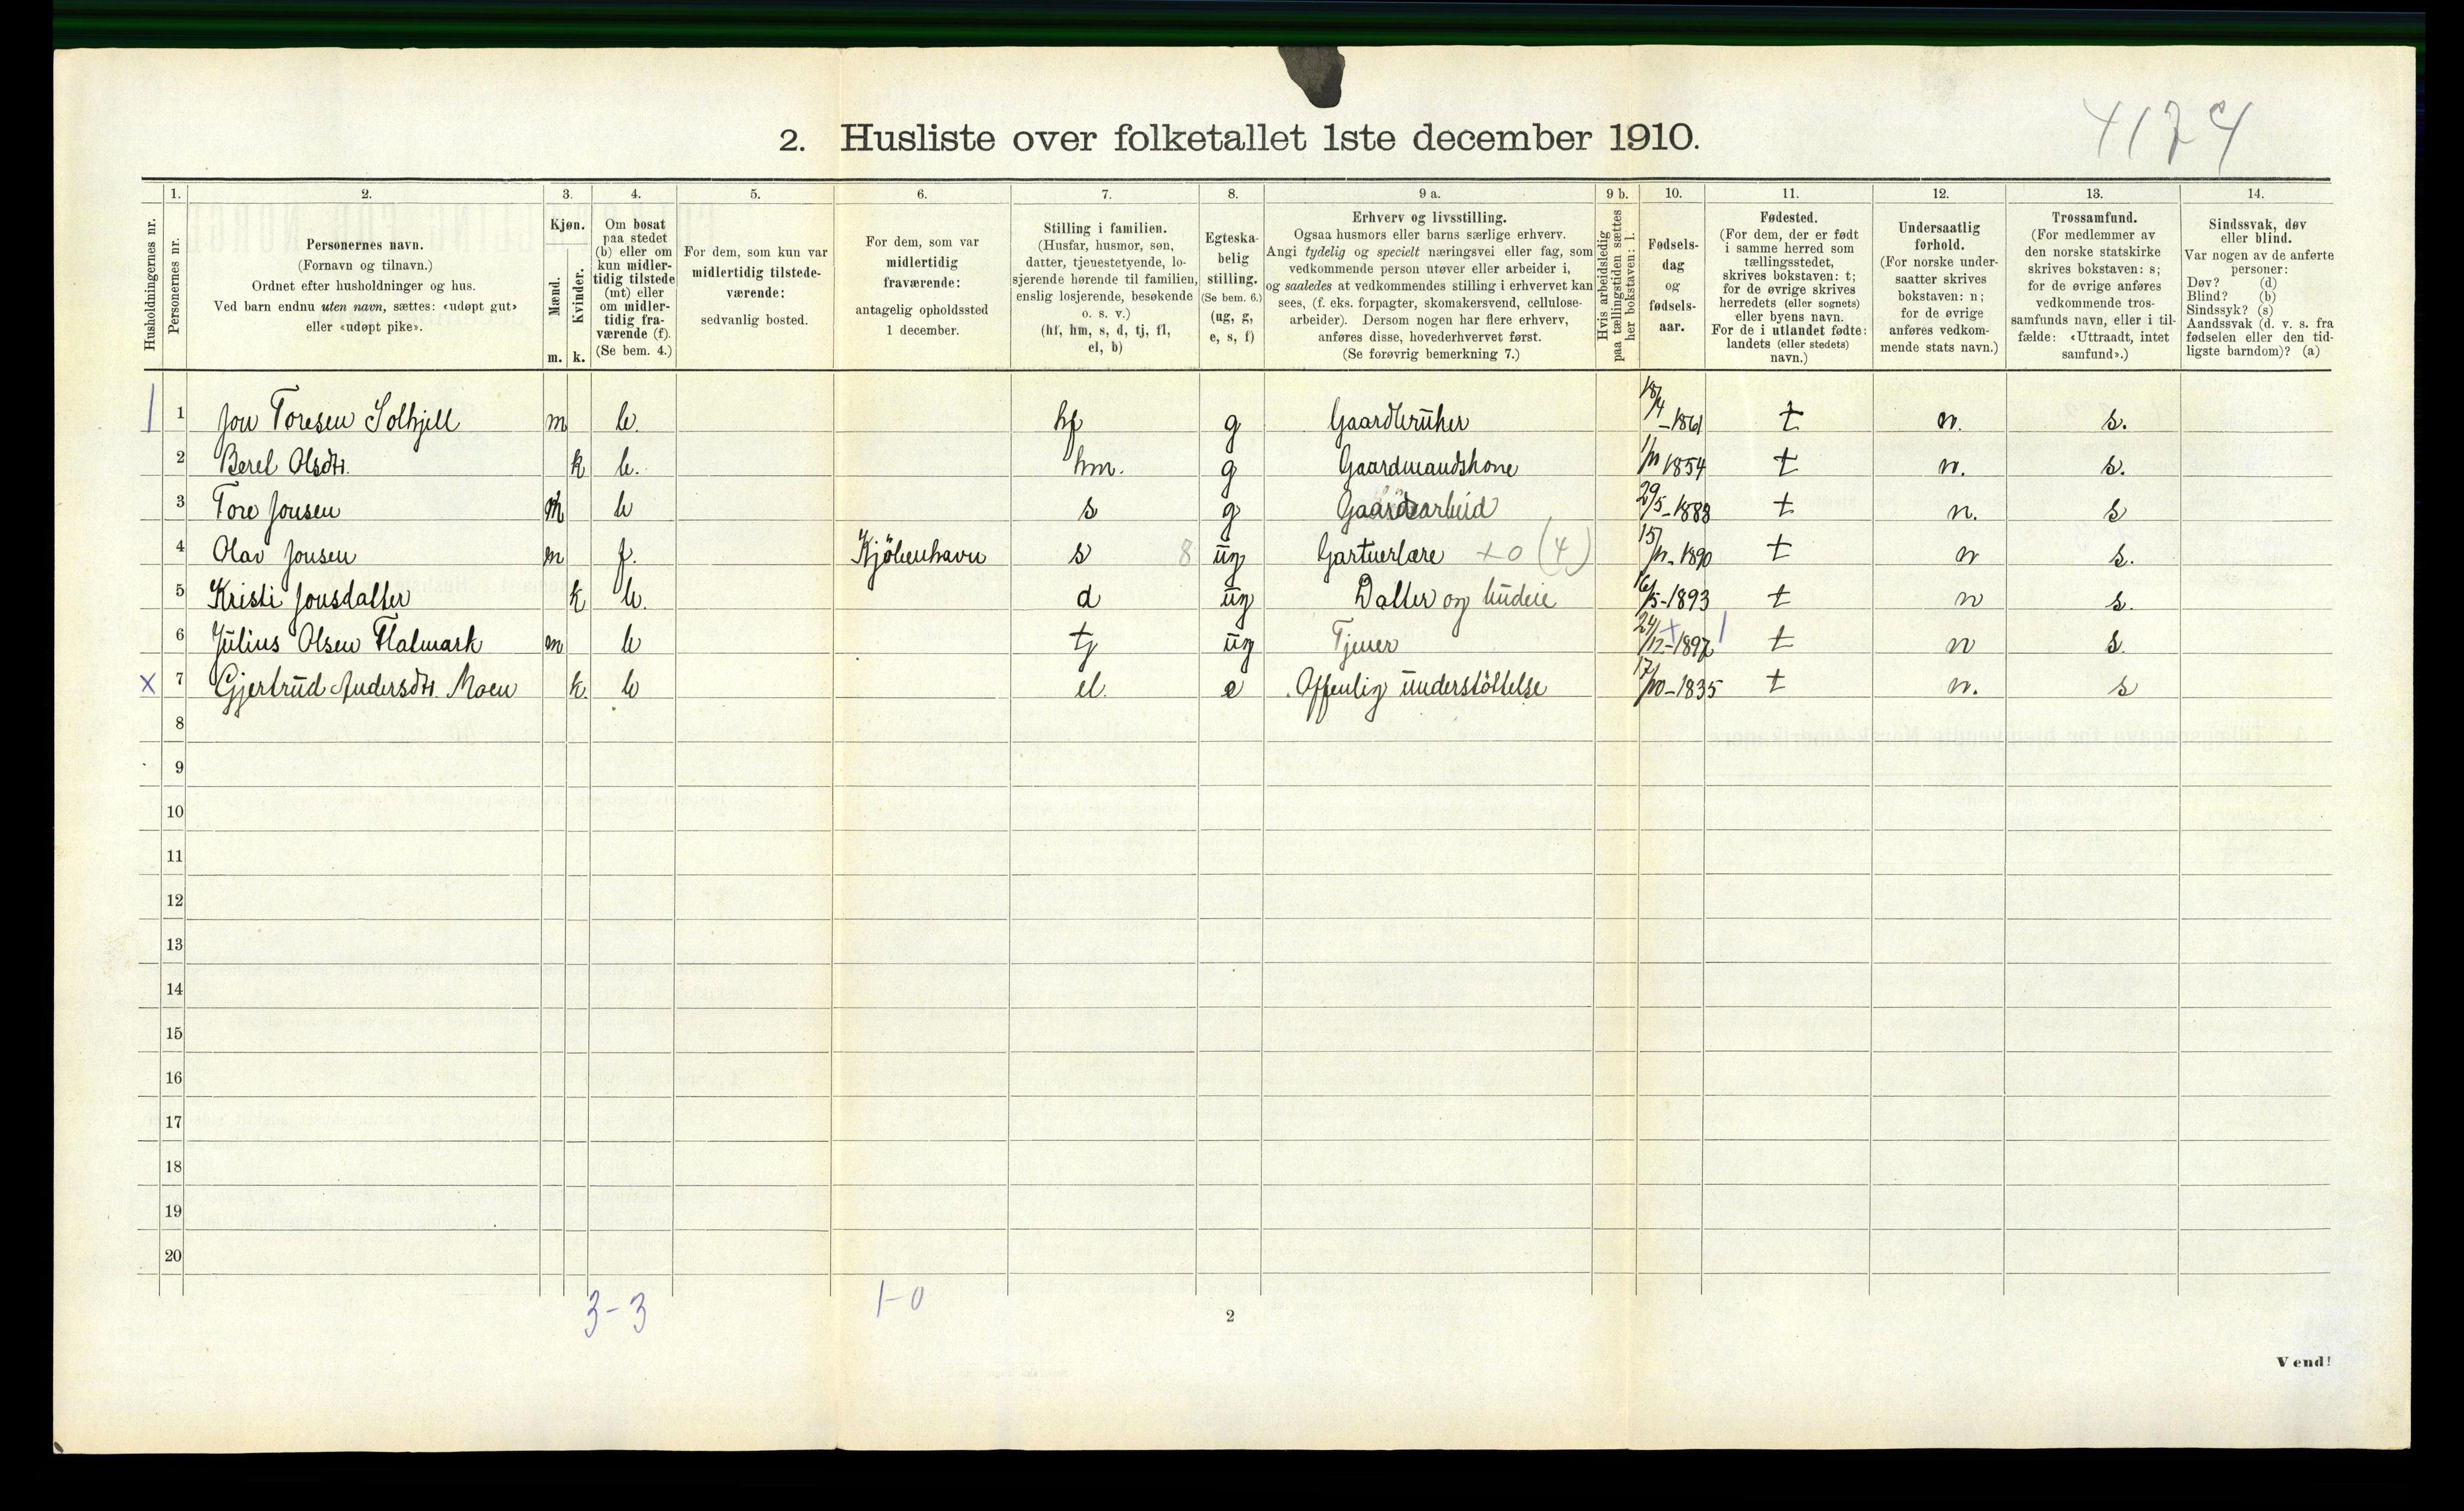 4174
2. Husliste over folketallet 1ste december 1910.
Husholdningernes nr.
1. Personernes nr.
2. Personernes navn.
(Fornavn og tilnavn.)
Ordnet efter husholdninger og hus.
Ved barn endnu uten navn, sættes: «udøpt gut»
eller «udøpt pike».
3. Kjøn.
Mænd. m.
Kvinder. k.
4. Om bosat
paa stedet
(b) eller om
kun midler-
tidig tilstede
(mt) eller
om midler-
tidig fra-
værende (f).
(Se bem. 4.)
5. For dem, som kun var
midlertidig tilstede-
værende:
sedvanlig bosted.
6. For dem, som var
midlertidig
fraværende:
antagelig opholdssted
1 december.
7. Stilling i familien.
(Husfar, husmor, søn,
datter, tjenestetyende, lo-
sjerende hørende til familien,
enslig losjerende, besøkende
o. s. v.)
(hf, hm, s, d, tj, fl,
el, b)
8. Egteska-
belig
stilling.
(Se bem. 6.)
(ug, g,
e, s, f)
9 a. Erhverv og livsstilling.
Ogsaa husmors eller barns særlige erhverv.
Angi tydelig og specielt næringsvei eller fag, som
vedkommende person utøver eller arbeider i,
og saaledes at vedkommendes stilling i erhvervet kan
sees, (f. eks. forpagter, skomakersvend, cellulose-
arbeider). Dersom nogen har flere erhverv,
anføres disse, hovederhvervet først.
(Se forøvrig bemerkning 7.)
9 b. Hvis arbeidsledig
paa tællingstiden sættes
her bokstaven: l.
10. Fødsels-
dag
og
fødsels-
aar.
11. Fødested.
(For dem, der er født
i samme herred som
tællingsstedet,
skrives bokstaven: t;
for de øvrige skrives
herredets (eller sognets)
eller byens navn.
For de i utlandet fødte:
landets (eller stedets)
navn.)
12. Undersaatlig
forhold.
(For norske under-
saatter skrives
bokstaven: n;
for de øvrige
anføres vedkom-
mende stats navn.)
13. Trossamfund.
(For medlemmer av
den norske statskirke
skrives bokstaven: s;
for de øvrige anføres
vedkommende tros-
samfunds navn, eller i til-
fælde: «Uttraadt, intet
samfund».)
14. Sindssvak, døv
eller blind.
Var nogen av de anførte
personer:
Døv? (d)
Blind? (b)
Sindssyk? (s)
Aandssvak (d. v. s. fra
fødselen eller den tid-
ligste barndom)? (a)
1 1 Jon Toresen Solhjell m b. hf g Gaardbruker 18/4-1861 t n. s.
2 Berel Olsdtr. k b. hm. g Gaardmandskone 1854 t n. s.
3 Tore Jonsen m b s g Gaardsarbeid 29/5-1888 t n. s
4 Olav Jonsen m f. Kjøbenhavn s 8 ug Gartnerlære +0 (4) 15/11-1890 t n s.
5 Kristi Jonsdatter k b. d ug Datter og budeie 16/5-1893 t n s.
6 Julius Olsen Flatmark m b tj ug Tjener 24/12-1897 t n s.
x 7 Gjertrud Andersdtr. Moen k. b el. e Offenlig understøttelse 17/10-1835 t n. s
8
9
10
11
12
13
14
15
16
17
18
19
20
3-3 1-0
2
Vend!